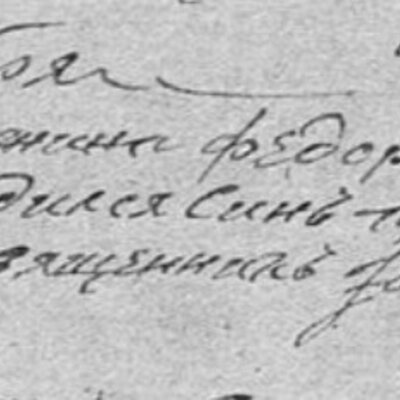 бря
енина Федор
дился синъ
вященникъ